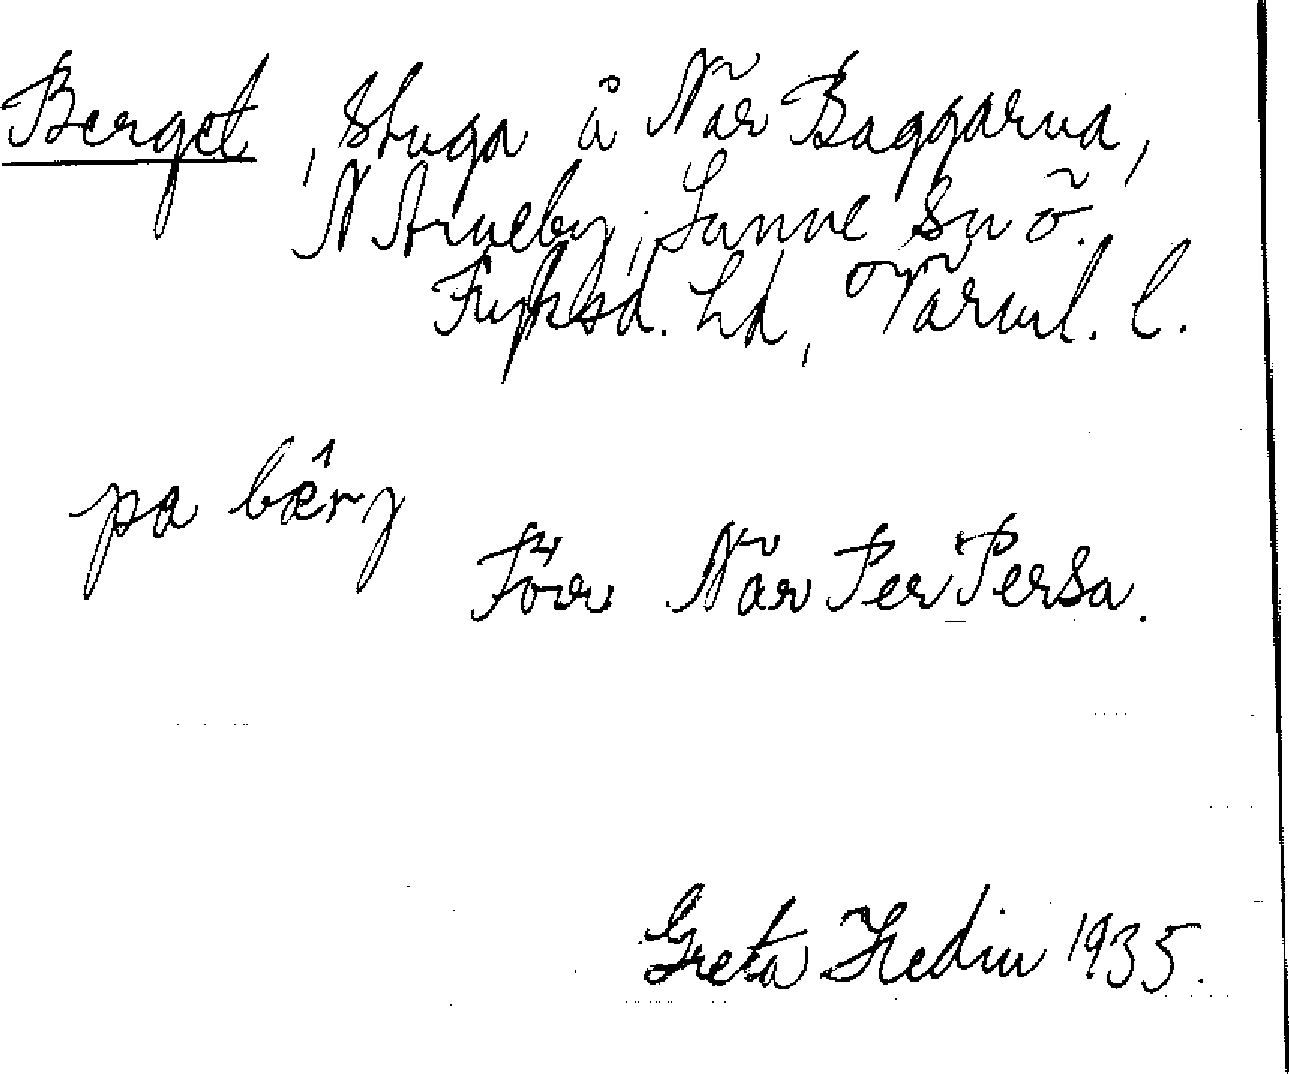 Berget, stuga å När Baggarna,
N Arneby, Sunne sn ö.
Fryksd. hd, Värml. l.
pa bærj
Förr När Per Persa.
Greta Hedin 1935.